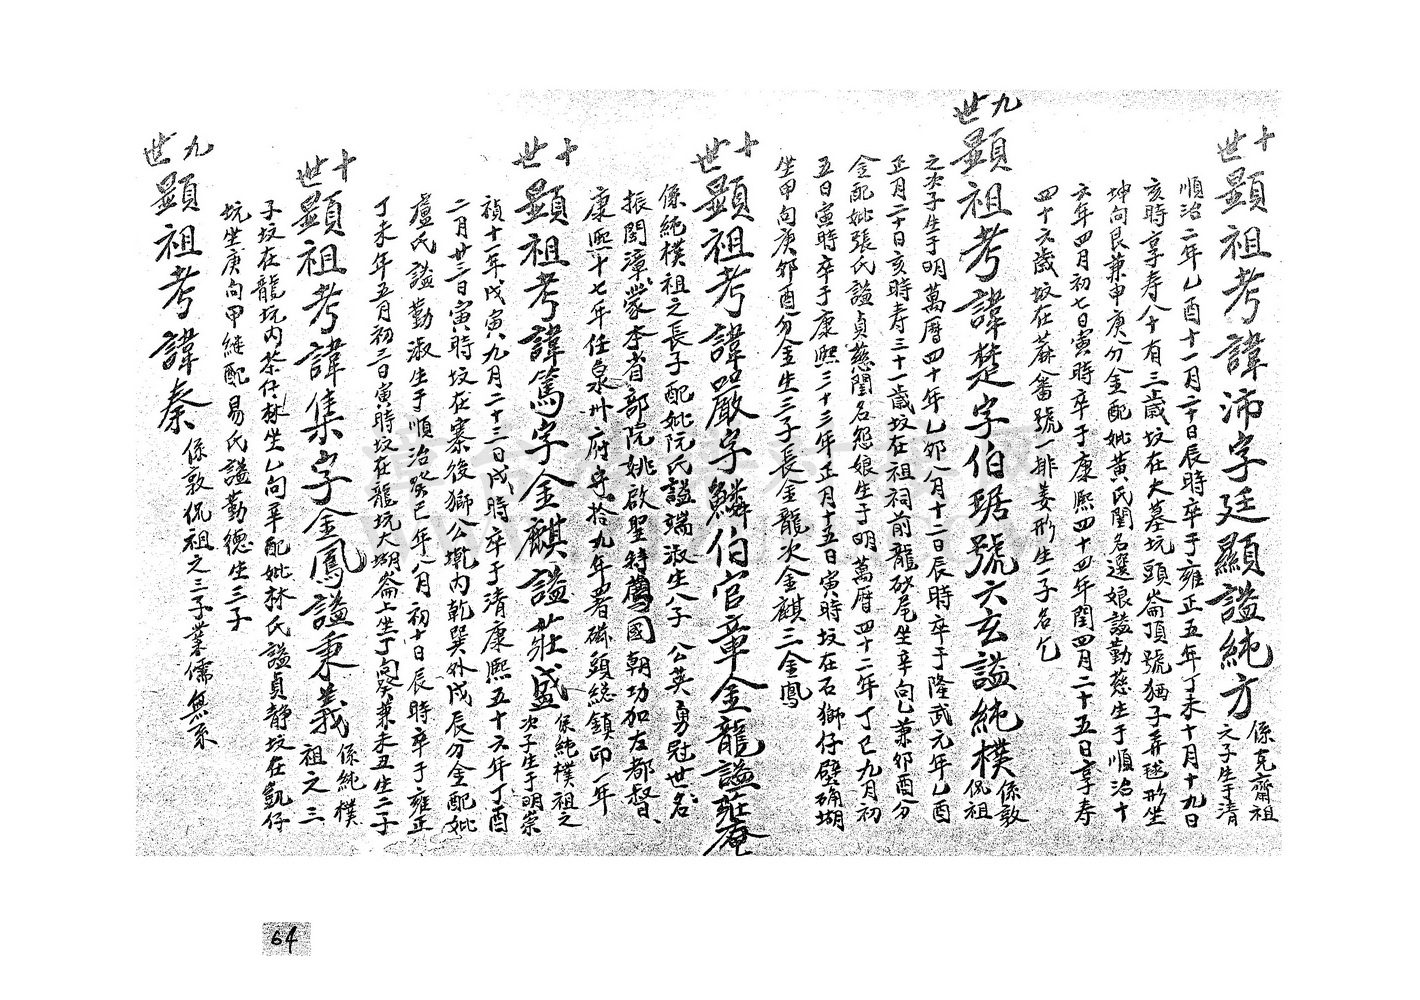 十世顯祖考諱沛字廷顯謚純方 係克齋祖之子生于清
順治二年乙酉十一月二十日辰時卒于雍正五年丁未十月十九日
亥時享寿八十有三歲坟在大墓坑頭崙頂號猶子弄毬形坐
坤向艮兼申庚分金配妣黃氏閨名選娘謚勤慈生于順治十
六年四月初七日寅時卒于康熙四十四年閏四月二十五日享寿
四十六歲坟在蔴畲號一排姜形生一子名乞
九世顯祖考諱楚字伯琚號六玄謚純樸 係敦侃祖
之次子生于明萬曆四十年乙卯八月十二日辰時卒于隆武元年乙酉
正月二十日亥時寿三十一歲坟在祖祠前龍砂尾坐辛向乙兼卯酉分
金配妣張氏謚貞慈閨名怨娘生于明萬曆四十二年丁巳九月初
五日寅時卒于康熙三十三年正月十五日寅時坟在石獅仔壁硧堋
坐甲向庚卯酉分金生三子長金龍次金麒三金鳳
十世顯祖考諱嚴字鱗伯官章金龍謚莊菴
係純樸祖之長子配妣阮氏謚端淑生八子 公英勇冠世名
振閩漳蒙本省部院姚啟聖特薦國朝功加左都督
康熙十七年任泉州府守拾九年署磁頭總鎮印一年
十世顯祖考諱篤字金麒謚莊盛 係純樸祖之次子生于明崇
禎十一年戊寅九月二十三日戌時卒于清康熙五十六年丁酉
二月廿三日寅時坟在寨後獅公墘內乾巽外戌辰分金配妣
盧氏謚勤淑生于順治癸巳年八月初十日辰時卒于雍正
丁未年五月初三日寅時坟在龍坑大堋崙上坐丁向癸兼未丑生二子
十世顯祖考諱集字金鳳謚秉義 係純樸祖之三
子坟在龍坑內茶仔林坐乙向辛配妣林氏謚貞静坟在凱仔
坑坐庚向甲継配易氏謚勤德生三子
九世顯祖考諱秦 係敦侃祖之三子業儒無系
64